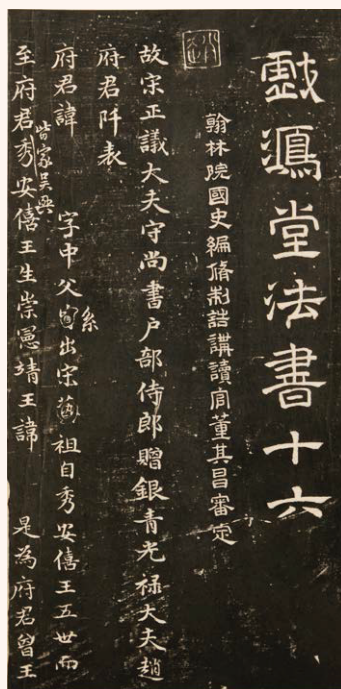 戲鴻堂法書十六
翰林院國史編脩制誥講讀官董其昌審定
故宋正議大夫守尚書户部侍郎贈銀青光祿大夫趙
府君阡表
府君諱 字中父系出宋藝祖自秀安僖王五世而
皆家吳興
至府君秀安僖王生崇憲靖王諱 是為府君曾王